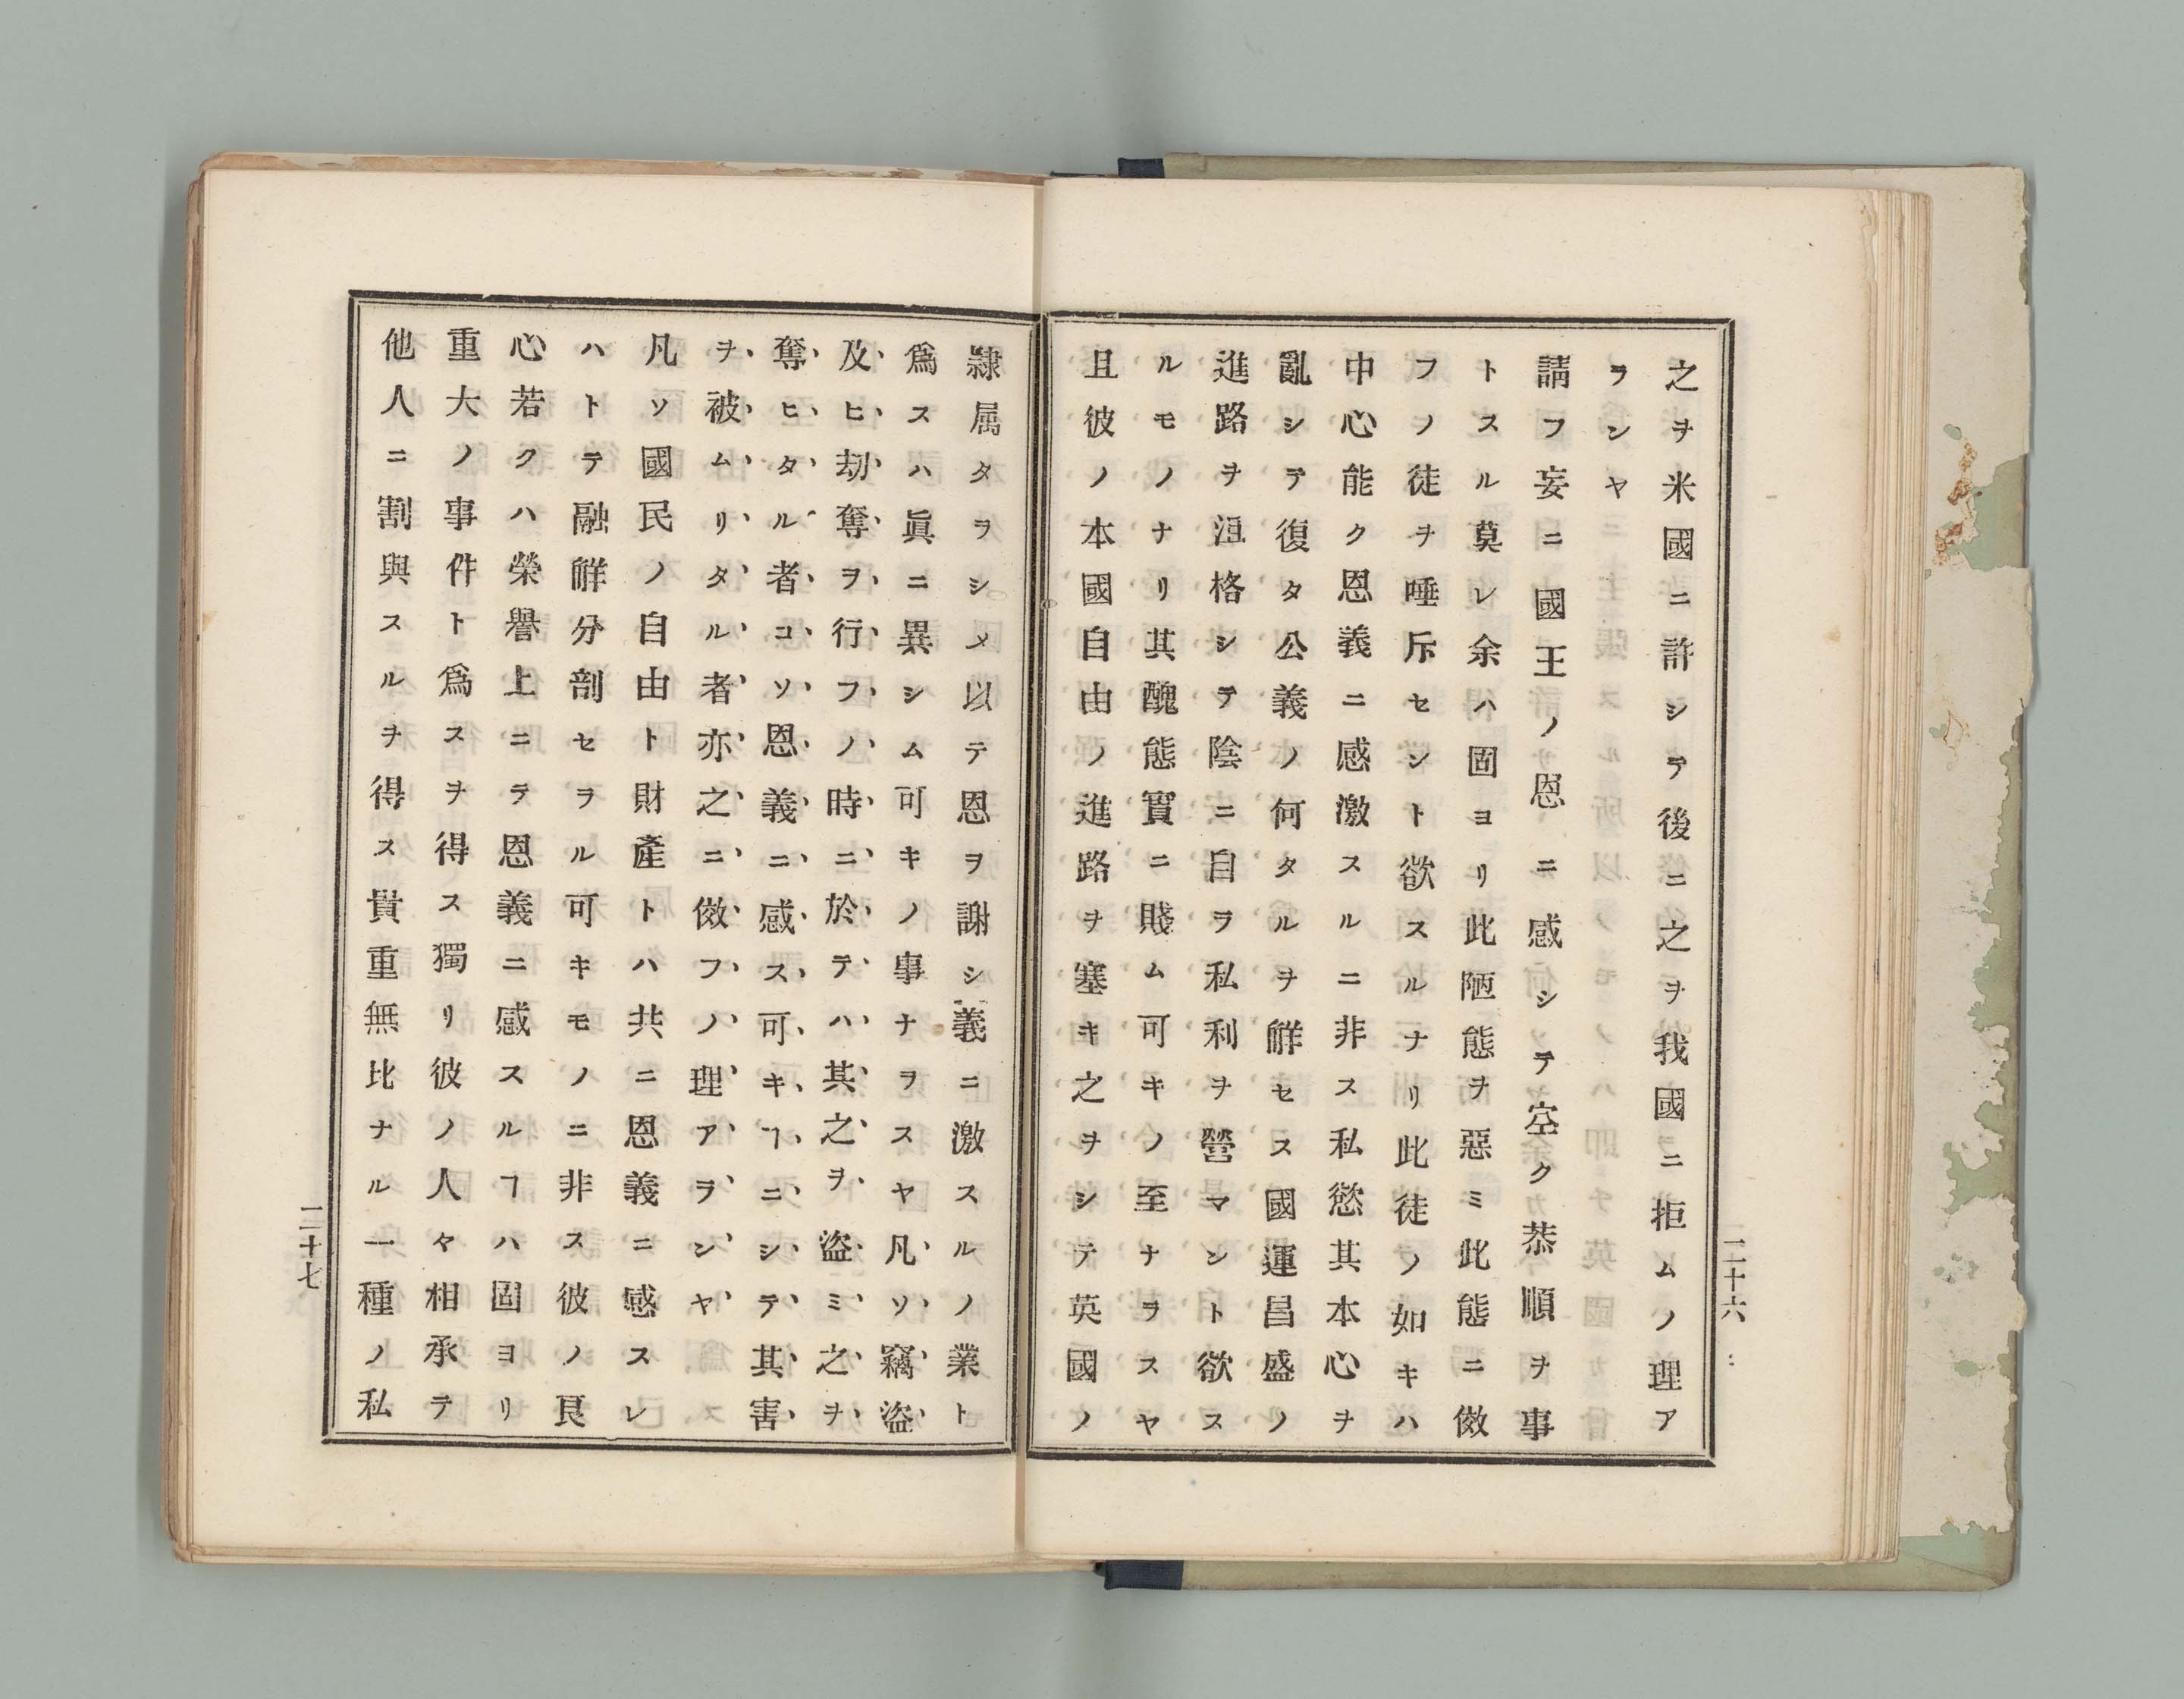 之ヲ米國ニ許シテ後ニ之ヲ我國ニ拒ムノ理ア
ランヤ
請フ妄ニ國王ノ恩ニ感シテ空ク恭順ヲ事
トスル莫レ余ハ固ヨリ此陋態ヲ惡ミ此態ニ傚
フノ徒ヲ唾斥セント欲スルナリ此徒ノ如キハ
中心能ク恩義ニ感激スルニ非ス私慾其本心ヲ
亂シテ復タ公義ノ何タルヲ觧セス國運昌盛ノ
進路ヲ沮格シテ陰ニ自ラ私利ヲ營マント欲ス
ルモノナリ其醜態實ニ賤ム可キノ至ナラスヤ
且彼ノ本國自由ノ進路ヲ塞キ之ヲシテ英國ノ
二十六
隷属タラシメ以テ恩ヲ謝シ義ニ激スルノ業ト
爲スハ眞ニ異シム可キノ事ナラスヤ凡ソ竊盜
及ヒ劫奪ヲ行フノ時ニ於テハ其之ヲ盜ミ之ヲ
奪ヒタル者コソ恩義ニ感ス可キヿニシテ其害
ヲ被ムリタル者亦之ニ傚フノ理アランヤ
凡ソ國民ノ自由ト財產トハ共ニ恩義ニ感スレ
ハトテ融觧分剖セラル可キモノニ非ス彼ノ良
心若クハ榮譽上ニテ恩義ニ感スルヿハ固ヨリ
重大ノ事件ト爲スヲ得ス獨リ彼ノ人々相承テ
他人ニ割與スルヲ得ス貴重無比ナル一種ノ私
二十七